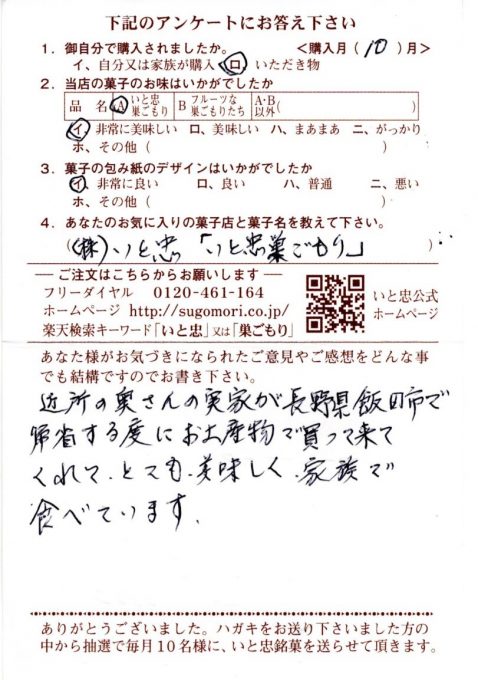 下記のアンケートにお答え下さい
1．御自分で購入されましたか。　＜購入月（10）月＞
イ、自分又は家族が購入　ロ、いただき物
2．当店の菓子のお味はいかがでしたか
品　名　A いと忠巣ごもり　B フルーツな巣ごもりたち　A･B以外（　　）
イ、非常に美味しい　ロ、美味しい　ハ、まあまあ　ニ、がっかり
ホ、その他（　　）
3．菓子の包み紙のデザインはいかがでしたか
イ、非常に良い　ロ、良い　ハ、普通　ニ、悪い
ホ、その他（　　）
4．あなたのお気に入りの菓子店と菓子名を教えて下さい。
（(株)いと忠「いと忠巣ごもり」）
― ご注文はこちらからお願いします ―
フリーダイヤル　0120-461-164
ホームページ　http://sugomori.co.jp/
楽天検索キーワード「いと忠」又は「巣ごもり」
いと忠公式
ホームページ
あなた様がお気づきになられたご意見やご感想をどんな事
でも結構ですのでお書き下さい。
近所の奥さんの実家が長野県飯田市で
帰省する度にお土産物で買って来て
くれて、とても、美味しく、家族で
食べています、
ありがとうございました。ハガキをお送り下さいました方の
中から抽選で毎月10名様に、いと忠銘菓を送らせて頂きます。